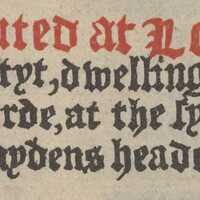 uted at Lo
tyt, dwelling
rde, at the sy
aydens heade